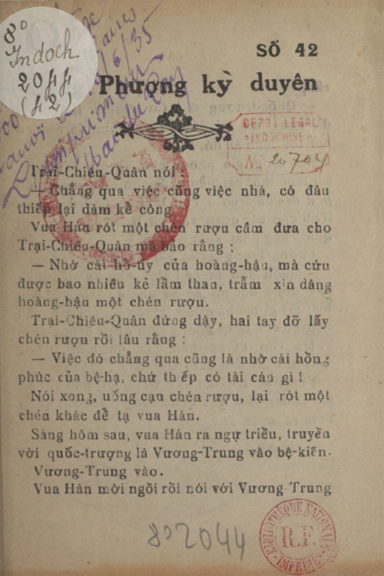 8º
Indoch
2044
(42)
SỐ 42
Phượng kỳ duyên
DEPOT LEGAL
INDOCHINE
Nº 20704
Trại-Chiêu-Quân nói :
— Chẳng qua việc cũng việc nhà, có đâu
thiếp lại dám kể công.
Vua Hán rót một chén rượu cầm đưa cho
Trại-Chiêu-Quân mà bảo rằng :
— Nhờ cái hồ-uy của hoàng-hậu, mà cứu
được bao nhiêu kẻ lầm than, trẫm xin dâng
hoàng-hậu một chén rượu.
Trại-Chiêu-Quân đứng dậy, hai tay đỡ lấy
chén rượu rồi tâu rằng :
— Việc đó chẳng qua cũng là nhờ cái hồng
phúc của bệ-hạ, chứ th ếp có tài cán gì !
Nói xong, uống cạn chén rượu, lại rót một
chén khác để tạ vua Hán.
Sáng hôm sau, vua Hán ra ngự triều, truyền
vời quốc-trượng là Vương-Trung vào bệ-kiến.
Vương-Trung vào.
Vua Hán mời ngồi rồi nói với Vương Trung
8º 2044
R.F.